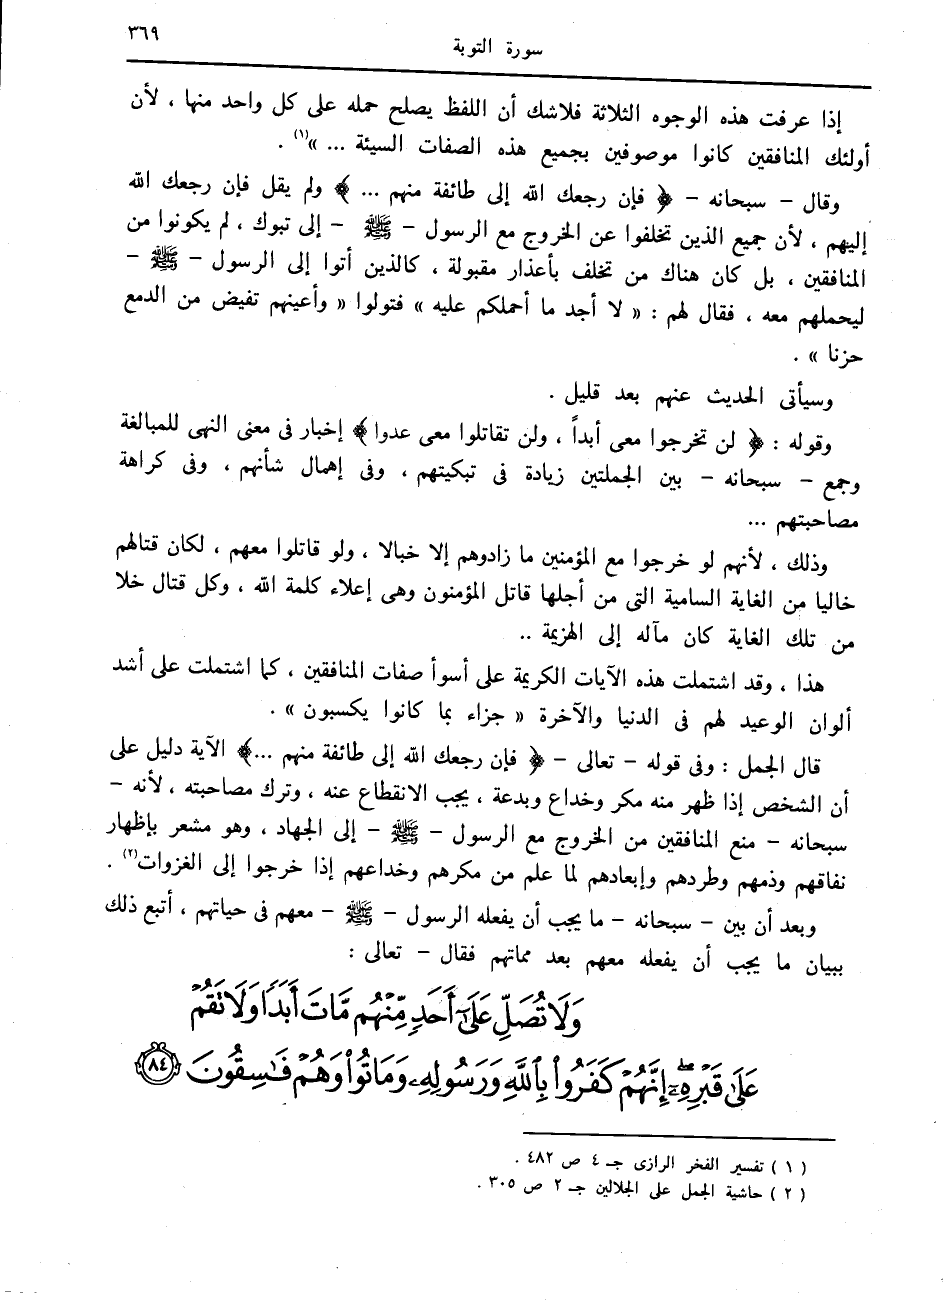 سورة التوبة ٣٦٩
إذا عرفت هذه الوجوه الثلاثة فلاشك أن اللفظ يصلح حمله على كل واحد منها ، لأن
أولئك المنافقين كانوا موصوفين بجميع هذه الصفات السيئة ... »(١) .
وقال – سبحانه – ﴿ فإن رجعك الله إلى طائفة منهم ... ﴾ ولم يقل فإن رجعك الله
إليهم ، لأن جميع الذين تخلفوا عن الخروج مع الرسول – ﷺ – إلى تبوك ، لم يكونوا من
المنافقين ، بل كان هناك من تخلف بأعذار مقبولة ، كالذين أتوا إلى الرسول – ﷺ –
ليحملهم معه ، فقال لهم : « لا أجد ما أحملكم عليه » فتولوا « وأعينهم تفيض من الدمع
حزنا » .
وسيأتى الحديث عنهم بعد قليل .
وقوله : ﴿ لن تخرجوا معى أبداً ، ولن تقاتلوا معى عدوا ﴾ إخبار فى معنى النهى للمبالغة
وجمع – سبحانه – بين الجملتين زيادة فى تبكيتهم ، وفى إهمال شأنهم ، وفى كراهة
مصاحبتهم ...
وذلك ، لأنهم لو خرجوا مع المؤمنين ما زادوهم إلا خبالا ، ولو قاتلوا معهم ، لكان قتالهم
خاليا من الغاية السامية التى من أجلها قاتل المؤمنون وهى إعلاء كلمة الله ، وكل قتال خلا
من تلك الغاية كان مآله إلى الهزيمة ..
هذا ، وقد اشتملت هذه الآيات الكريمة على أسوأ صفات المنافقين ، كما اشتملت على أشد
ألوان الوعيد لهم فى الدنيا والآخرة « جزاء بما كانوا يكسبون » .
قال الجمل : وفى قوله – تعالى – ﴿ فإن رجعك الله إلى طائفة منهم ... ﴾ الآية دليل على
أن الشخص إذا ظهر منه مكر وخداع وبدعة ، يجب الانقطاع عنه ، وترك مصاحبته ، لأنه –
سبحانه – منع المنافقين من الخروج مع الرسول – ﷺ – إلى الجهاد ، وهو مشعر بإظهار
نفاقهم وذمهم وطردهم وإبعادهم لما علم من مكرهم وخداعهم إذا خرجوا إلى الغزوات(٢) .
وبعد أن بين – سبحانه – ما يجب أن يفعله الرسول – ﷺ – معهم فى حياتهم ، أتبع ذلك
ببيان ما يجب أن يفعله معهم بعد مماتهم فقال – تعالى :
وَلَا تُصَلِّ عَلَىٰٓ أَحَدٍ مِّنْهُم مَّاتَ أَبَدًا وَلَا تَقُمْ
عَلَىٰ قَبْرِهِۦٓ ۖ إِنَّهُمْ كَفَرُوا۟ بِٱللَّهِ وَرَسُولِهِۦ وَمَاتُوا۟ وَهُمْ فَـٰسِقُونَ ٨٤
( ١ ) تفسير الفخر الرازى جـ ٤ ص ٤٨٢ .
( ٢ ) حاشية الجمل على الجلالين جـ ٢ ص ٣٠٥ .